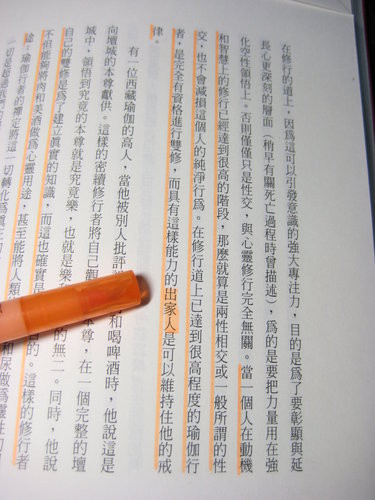 在修行的道上，因為這可以引發意識的強大專注力，目的是為了要彰顯與延
長心更深刻的層面（稍早有關死亡過程時曾描述），為的是要把力量用在強
化空性領悟上。否則僅僅只是性交，與心靈修行完全無關。當一個人在動機
和智慧上的修行已經達到很高的階段，那麼就算是兩性相交或一般所謂的性
交，也不會減損這個人的純淨行為。在修行道上已達到很高程度的瑜伽行
者，是完全有資格進行雙修，而具有這樣能力的出家人是可以維持住他的戒
律。
有一位西藏瑜伽的高人，當他被別人批評 和喝啤酒時，他說這是
向壇城的本尊獻供。這樣的密續修行者將自己觀 本尊，在一個完整的壇
城中，領悟到究竟的本尊就是究竟樂，也就是樂 的無二。同時，他說
自己的雙修是為了建立真實的知識，而這也確實是 目的。這樣的修行者
不但能夠將肉和美酒做為心靈用途，甚至能將人類 和尿做為靈性
途。瑜伽行者的禪定將這一切轉化為真
一切是超過我們的